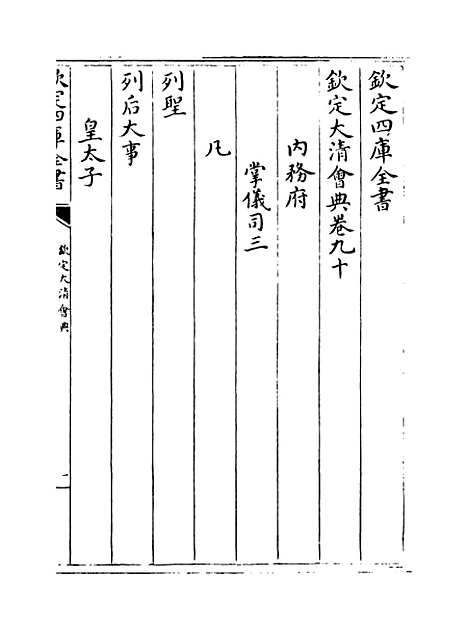 欽定四庫全書
欽定大清會典卷九十
內務府
掌儀司三
凡
列聖
列后大事
皇太子
欽定四庫全書
欽定大清會典